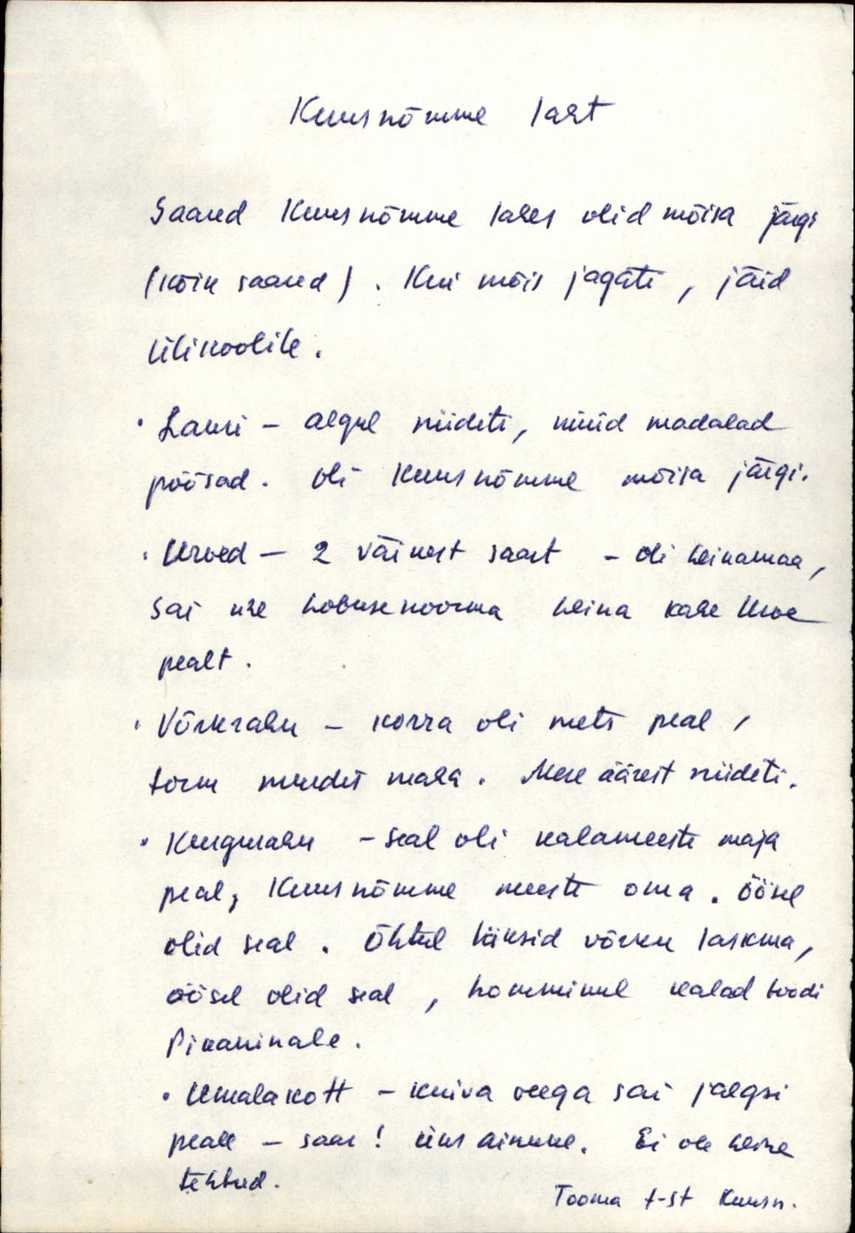 Kuusnõmme laht
Saared Kuusnõmme lahes olid mõisa järgi
(kõik saared). Kui mõis jagati, jäid
ülikoolile.
· Lauri – algul niideti, nüüd madalad
põõsad. Oli Kuusnõmme mõisa järgi.
· Urved – 2 väikest saart – oli heinamaa,
sai ühe hobusekoorma heina kahe Urve
pealt.
· Võrkrahu – korra oli mets peal,
torm murdis maha. Mere äärest niideti.
· Kungurahu – seal oli kalameeste maja
peal, Kuusnõmme meeste oma. Öösel
olid seal. Õhtul läksid võrku laskma,
öösel olid seal, hommikul kalad toodi
Pikaninale.
· Umalakott – kuiva veega sai jalgsi
peale – saar! üks ainuke. Ei ole heina
tehtud.
Tooma t-st Kuusn.